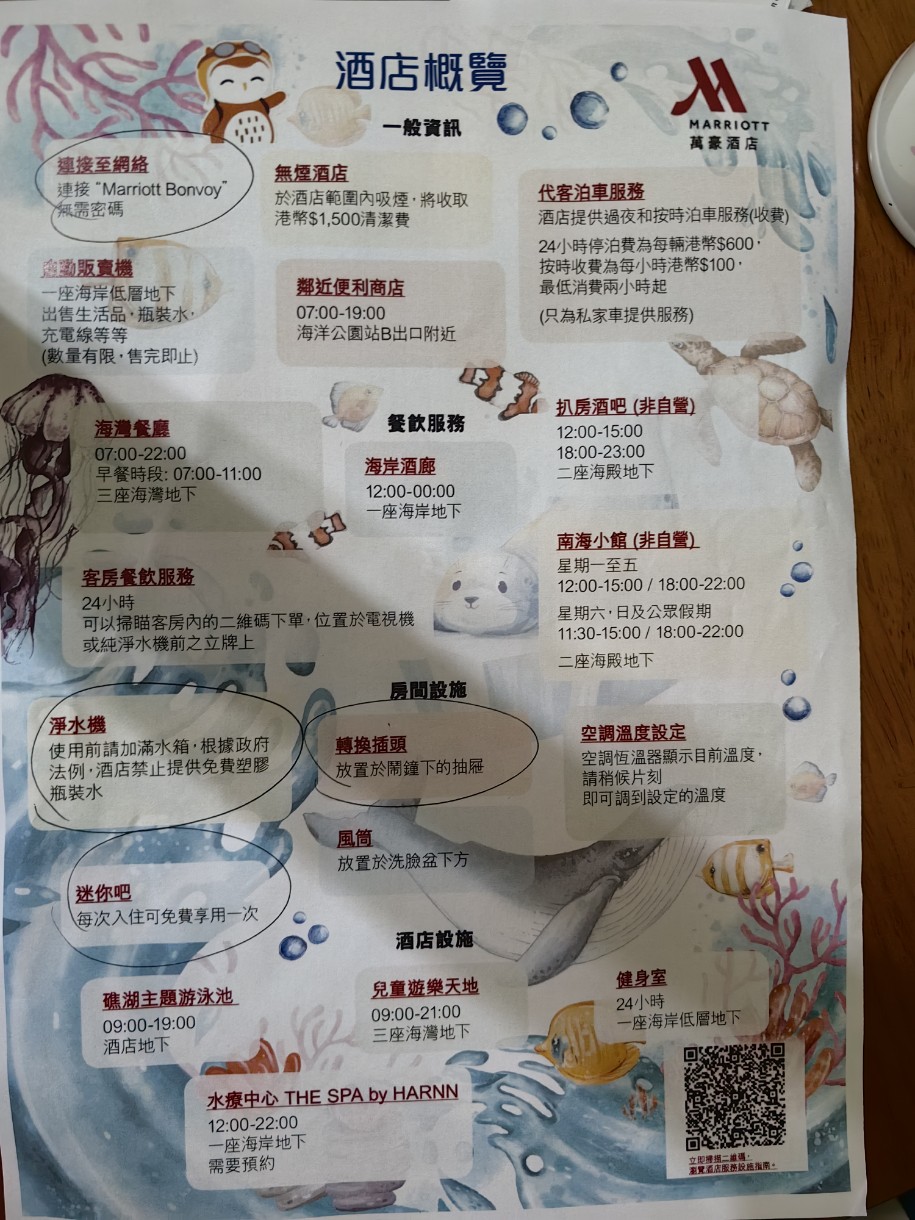 酒店概覽
MARRIOTT
萬豪酒店
一般資訊
連接至網絡
連接 “Marriott Bonvoy”
無需密碼
無煙酒店
於酒店範圍內吸煙，將收取
港幣$1,500清潔費
代客泊車服務
酒店提供過夜和按時泊車服務(收費)
24小時停泊費為每輛港幣$600，
按時收費為每小時港幣$100，
最低消費兩小時起
(只為私家車提供服務)
自動販賣機
一座海岸低層地下
出售生活品，瓶裝水，
充電線等等
(數量有限，售完即止)
鄰近便利商店
07:00-19:00
海洋公園站B出口附近
餐飲服務
海灣餐廳
07:00-22:00
早餐時段: 07:00-11:00
三座海灣地下
海岸酒廊
12:00-00:00
一座海岸地下
扒房酒吧 (非自營)
12:00-15:00
18:00-23:00
二座海殿地下
客房餐飲服務
24小時
可以掃瞄客房內的二維碼下單，位置於電視機
或純淨水機前之立牌上
南海小館 (非自營)
星期一至五
12:00-15:00 / 18:00-22:00
星期六，日及公眾假期
11:30-15:00 / 18:00-22:00
二座海殿地下
房間設施
淨水機
使用前請加滿水箱，根據政府
法例，酒店禁止提供免費塑膠
瓶裝水
轉換插頭
放置於鬧鐘下的抽屜
空調溫度設定
空調恆溫器顯示目前溫度，
請稍候片刻
即可調到設定的溫度
風筒
放置於洗臉盆下方
迷你吧
每次入住可免費享用一次
酒店設施
礁湖主題游泳池
09:00-19:00
酒店地下
兒童遊樂天地
09:00-21:00
三座海灣地下
健身室
24小時
一座海岸低層地下
水療中心 THE SPA by HARNN
12:00-22:00
一座海岸地下
需要預約
立即掃描二維碼，
瀏覽酒店服務設施指南。